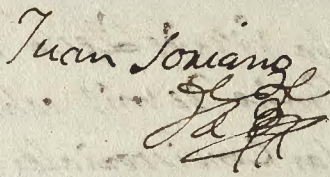 Juan Soriano